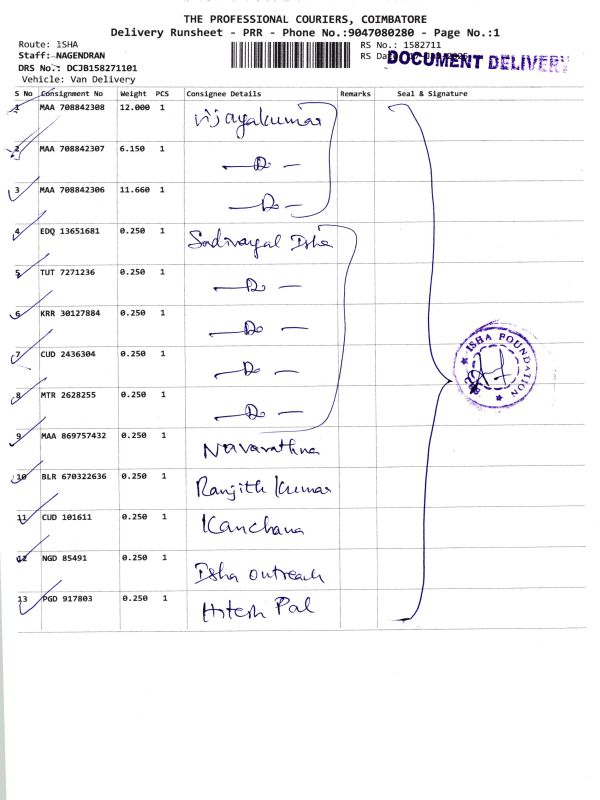 THE PROFESSIONAL COURIERS, COIMBATORE
Delivery Runsheet - PRR - Phone No.:9047080280 - Page No.:1
Route: ISHA
RS No.: 1582711
Staff: NAGENDRAN
RS Da
DOCUMENT DELIVERY
DRS No.: DCJB158271101
Vehicle: Van Delivery
S No Consignment No Weight PCS Consignee Details Remarks Seal & Signature
1 MAA 708842308 12.000 1 Vijayakumar
2 MAA 708842307 6.150 1 — Do —
3 MAA 708842306 11.660 1 — Do —
4 EDQ 13651681 0.250 1 Sadivayal Isha
5 TUT 7271236 0.250 1 — Do —
6 KRR 30127884 0.250 1 — Do —
7 CUD 2436304 0.250 1 — Do —
8 MTR 2628255 0.250 1 — Do —
9 MAA 869757432 0.250 1 Navarathna
10 BLR 670322636 0.250 1 Ranjith Kumar
11 CUD 101611 0.250 1 Kanchana
12 NGD 85491 0.250 1 Isha outreach
13 PGD 917803 0.250 1 Hitesh Pal
ISHA FOUNDATION